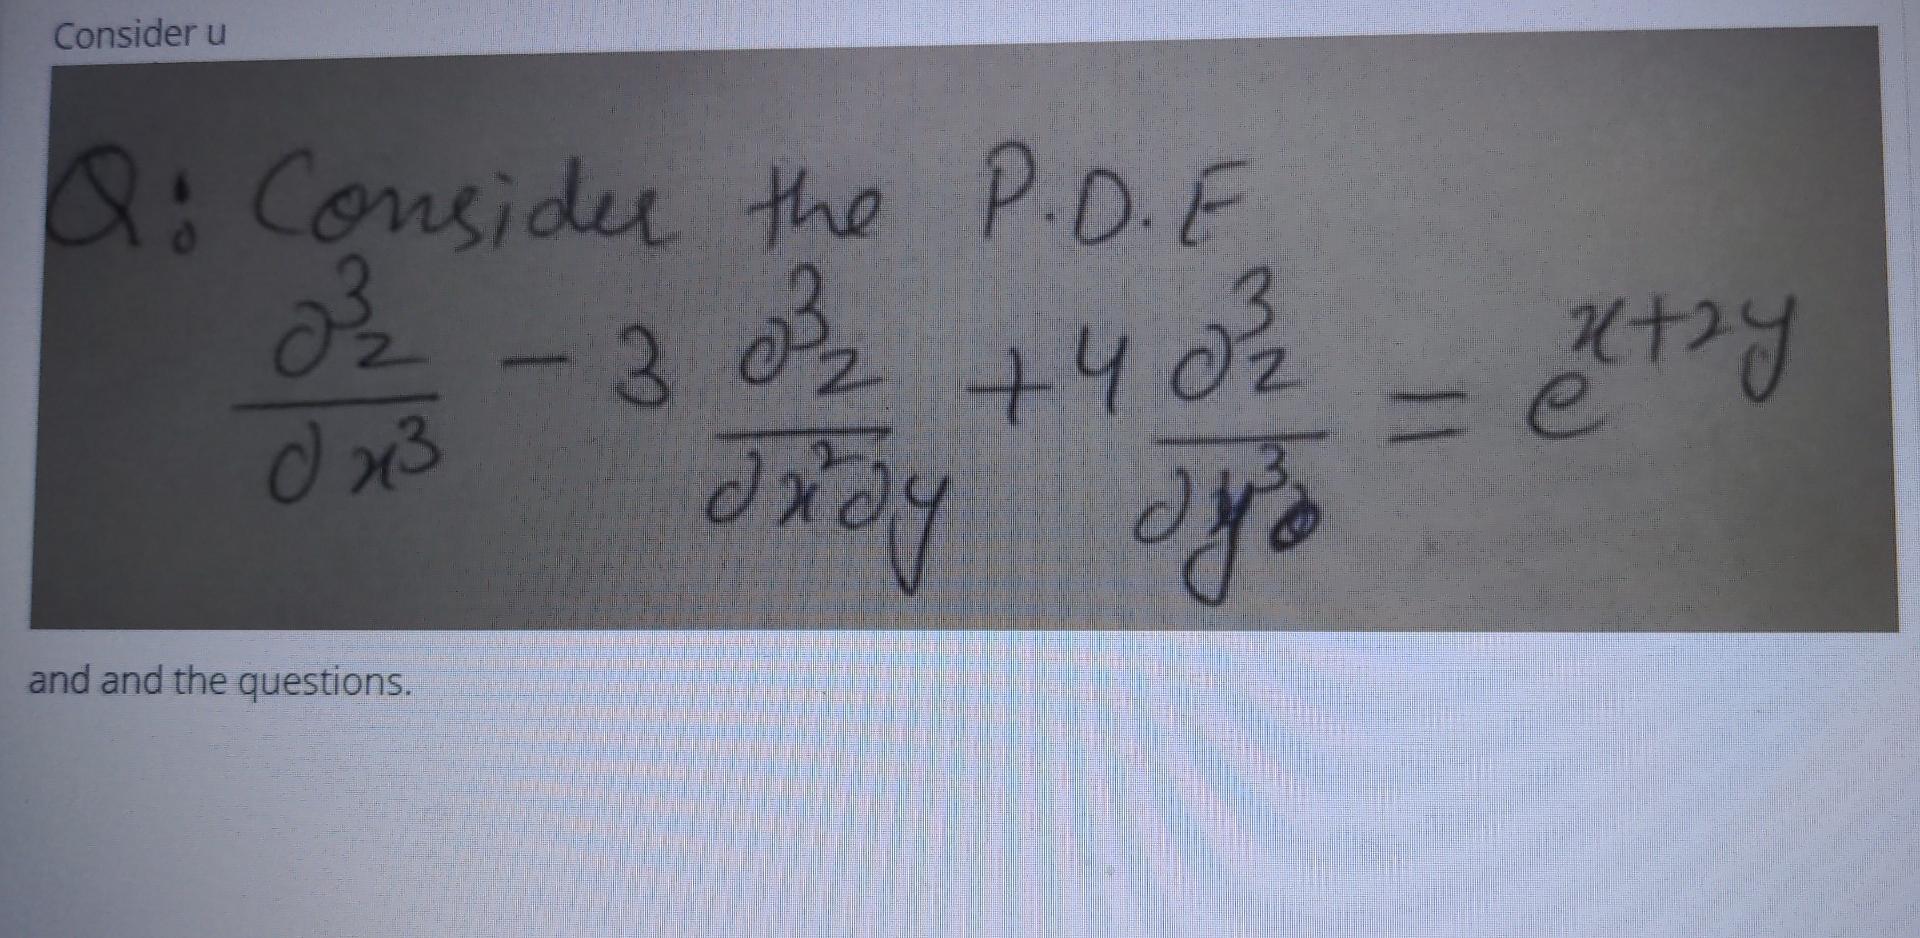 Consider u
Q: Consider the P.D.E
∂³z/∂x³ - 3 ∂³z/∂x²∂y + 4 ∂³z/∂y³ = e^(x+2y)
and and the questions.